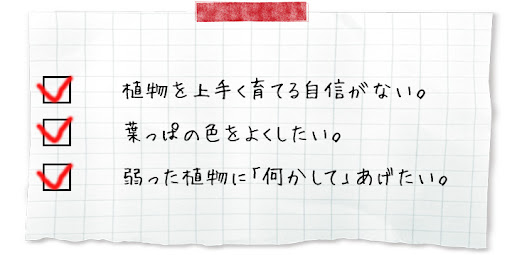 植物を上手く育てる自信がない。
葉っぱの色をよくしたい。
弱った植物に「何かして」あげたい。